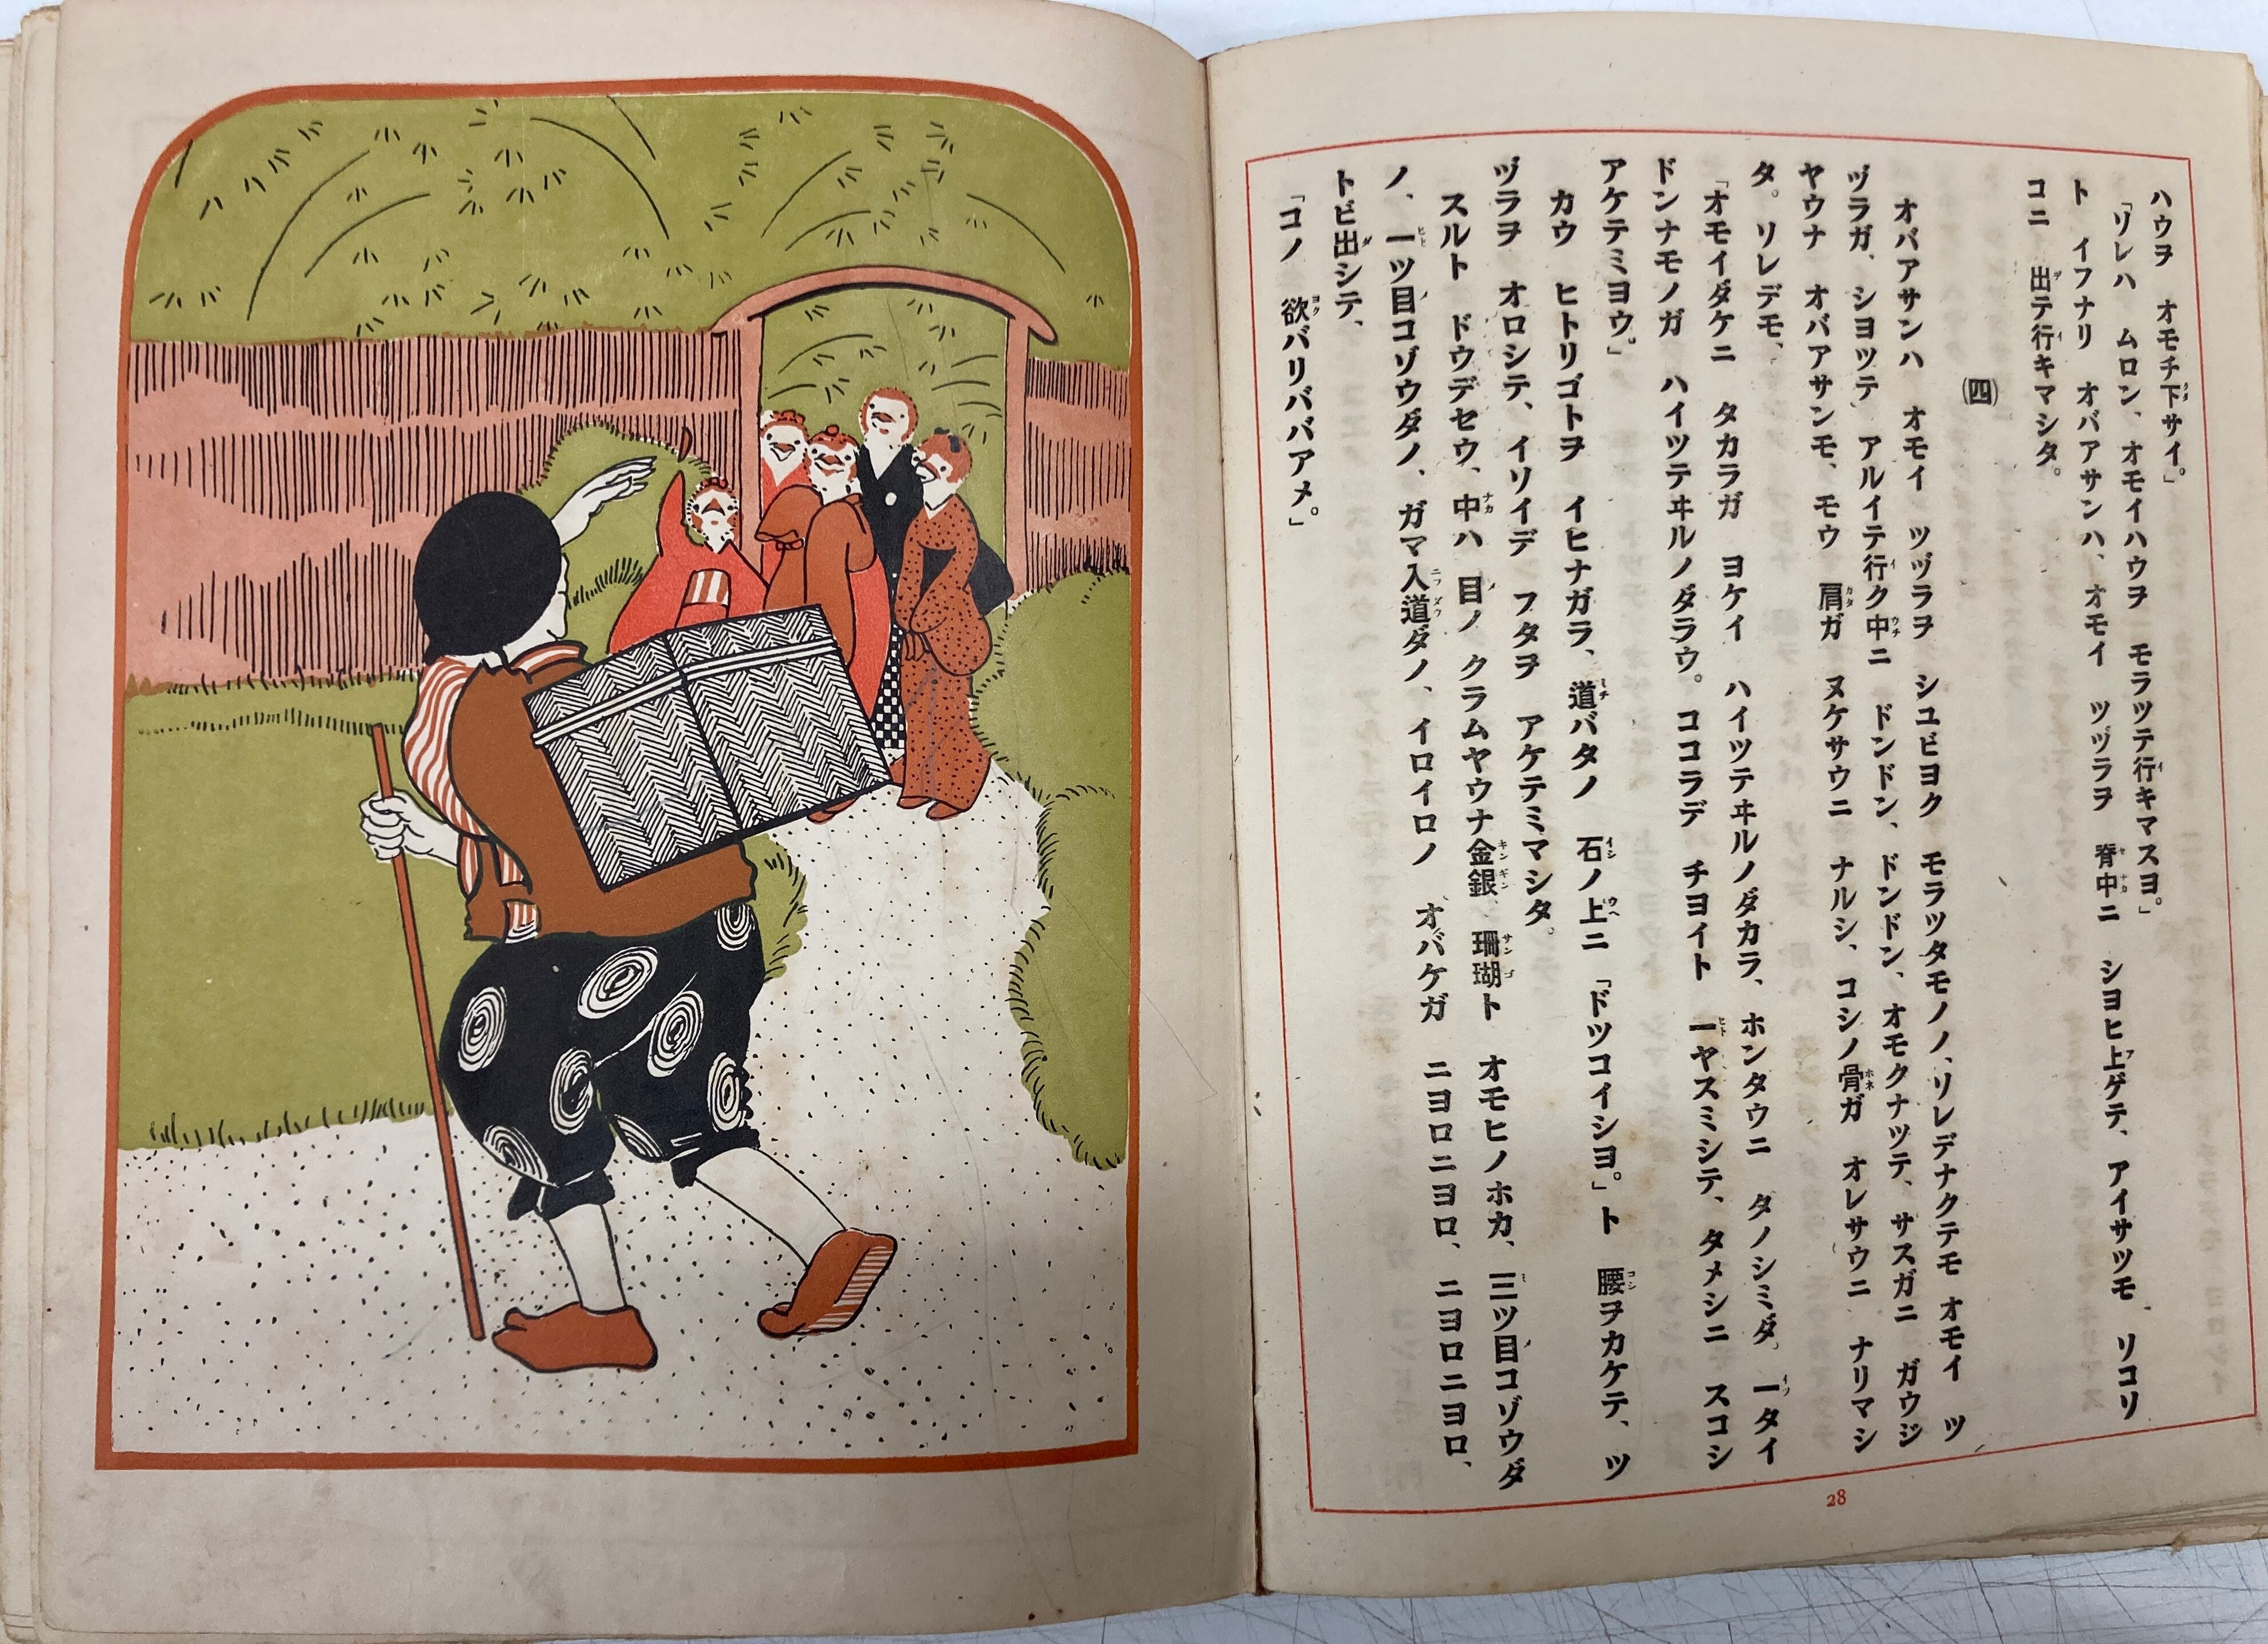 ハウヲ　オモチ下サイ。」
「ソレハ　ムロン、オモイハウヲ　モラツテ行キマスヨ。」
ト　イフナリ　オバアサンハ、オモイ　ツヅラヲ　脊中ニ　シヨヒ上ゲテ、アイサツモ　ソコソ
コニ　出テ行キマシタ。
(四)
オバアサンハ　オモイ　ツヅラヲ　シユビヨク　モラツタモノノ、ソレデナクテモ　オモイ　ツ
ヅラガ、シヨツテ　アルイテ行ク中ニ　ドンドン、ドンドン、オモクナツテ、サスガニ　ガウジ
ヤウナ　オバアサンモ、モウ　肩ガ　ヌケサウニ　ナルシ、コシノ骨ガ　オレサウニ　ナリマシ
タ。ソレデモ、
「オモイダケニ　タカラガ　ヨケイ　ハイツテヰルノダカラ、ホンタウニ　タノシミダ。一タイ
ドンナモノガ　ハイツテヰルノダラウ。ココラデ　チヨイト　一ヤスミシテ、タメシニ　スコシ
アケテミヨウ。」
カウ　ヒトリゴトヲ　イヒナガラ、道バタノ　石ノ上ニ「ドツコイシヨ。」ト　腰ヲカケテ、ツ
ヅラヲ　オロシテ、イソイデ　フタヲ　アケテミマシタ。
スルト　ドウデセウ、中ハ　目ノ　クラムヤウナ金銀、珊瑚ト　オモヒノホカ、三ツ目コゾウダ
ノ、一ツ目コゾウダノ、ガマ入道ダノ、イロイロノ　オバケガ　ニヨロニヨロ、ニヨロニヨロ、
トビ出シテ、
「コノ　欲バリババアメ。」
28